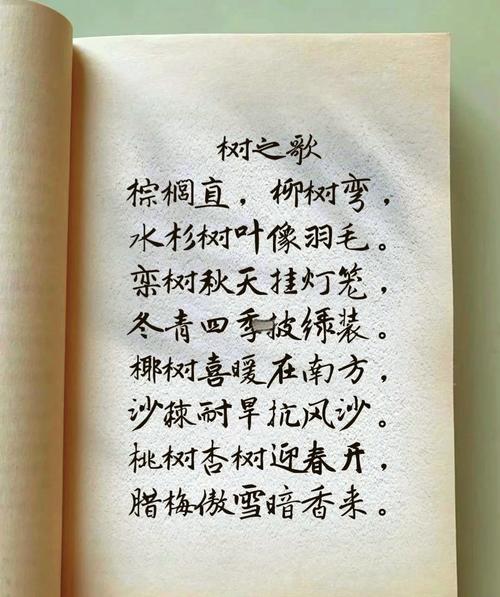 树之歌
棕榈直，柳树弯，
水杉树叶像羽毛。
栾树秋天挂灯笼，
冬青四季披绿装。
椰树喜暖在南方，
沙棘耐旱抗风沙。
桃树杏树迎春开，
腊梅傲雪暗香来。